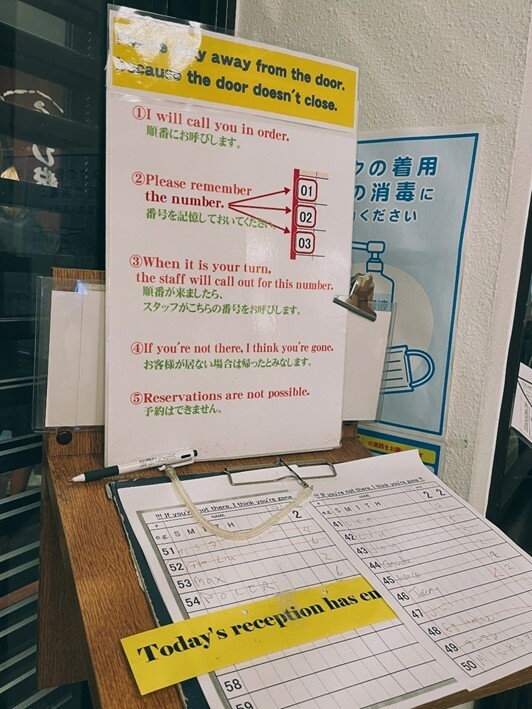 away from the door.
because the door doesn't close.
①I will call you in order.
順番にお呼びします。
②Please remember
the number.
番号を記憶しておいてください
01
02
03
③When it is your turn,
the staff will call out for this number.
順番が来ましたら、
スタッフがこちらの番号をお呼びします。
④If you're not there, I think you're gone.
お客様が居ない場合は帰ったとみなします。
⑤Reservations are not possible.
予約はできません。
クの着用
の消毒に
ください
!!! If you're not there, I think you're gone
NAME
e.g. SMITH 2
51
52
53 Max
54
Today's reception has en
58
!! If you're not there, I think you're gone !!
NAME
e.g. SMITH 2 2
41
42
43
44
45
46
47
48
49
50